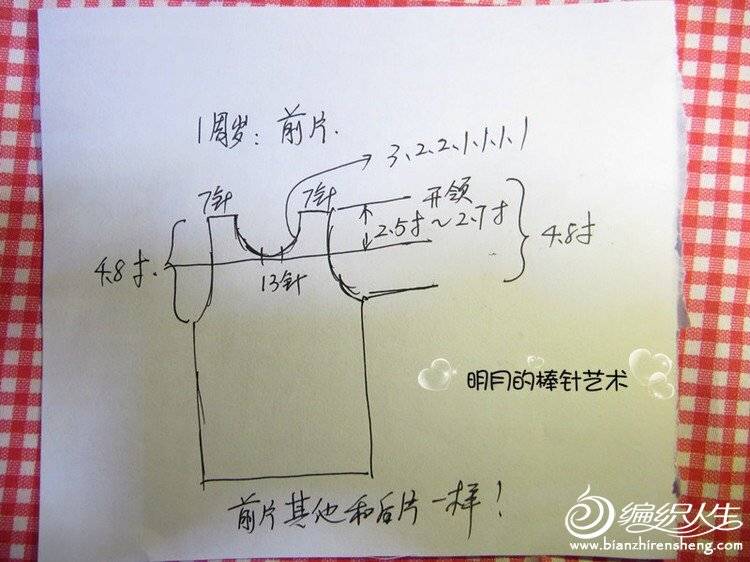 1周岁：前片.
3、2、2、1、1、1、1
7针 7针
开领
2.5寸～2.7寸
4.8寸
4.8寸.
13针
明月的棒针艺术
前片其他和后片一样！
编织人生
www.bianzhirensheng.com